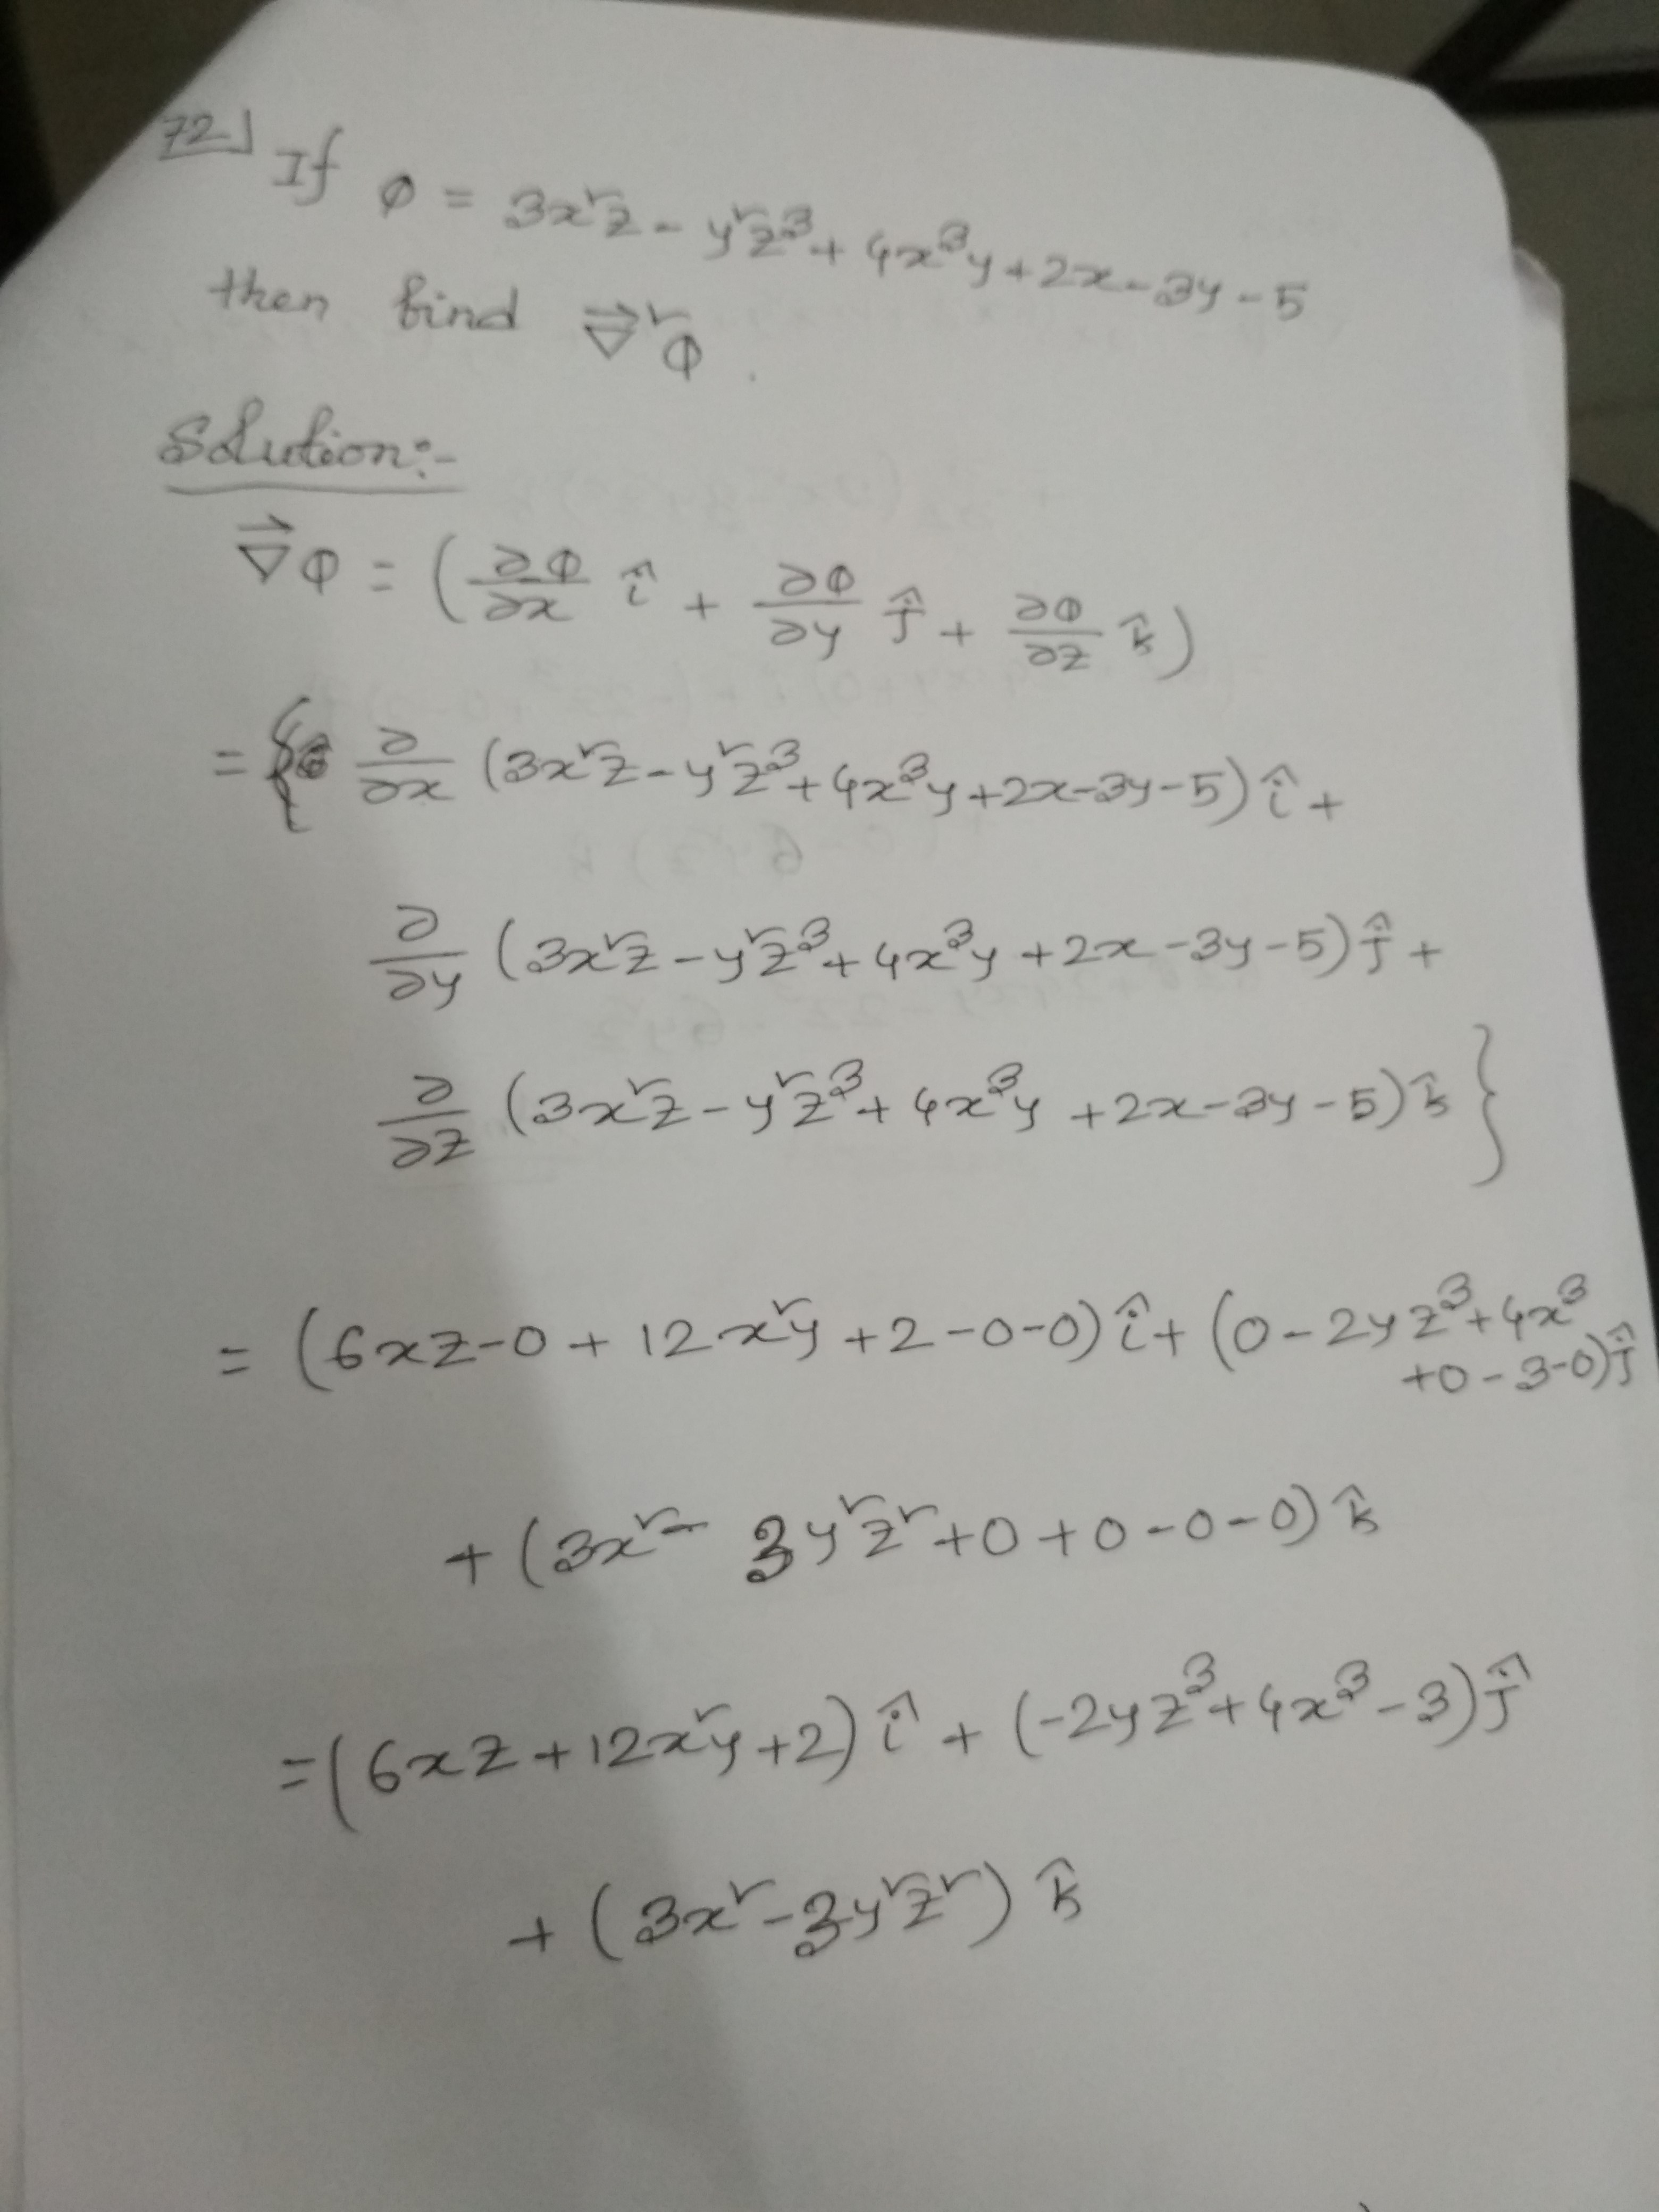 72] If φ = 3x²z - y²z³ + 4x³y + 2x - 3y - 5
then find ∇⃗²φ.
Solution:-
∇⃗φ = (∂φ/∂x î + ∂φ/∂y ĵ + ∂φ/∂z k̂)
= { ∂/∂x (3x²z - y²z³ + 4x³y + 2x - 3y - 5) î +
∂/∂y (3x²z - y²z³ + 4x³y + 2x - 3y - 5) ĵ +
∂/∂z (3x²z - y²z³ + 4x³y + 2x - 3y - 5) k̂ }
= (6xz - 0 + 12x²y + 2 - 0 - 0) î + (0 - 2yz³ + 4x³
+ 0 - 3 - 0) ĵ
+ (3x² - 3y²z² + 0 + 0 - 0 - 0) k̂
= (6xz + 12x²y + 2) î + (-2yz³ + 4x³ - 3) ĵ
+ (3x² - 3y²z²) k̂